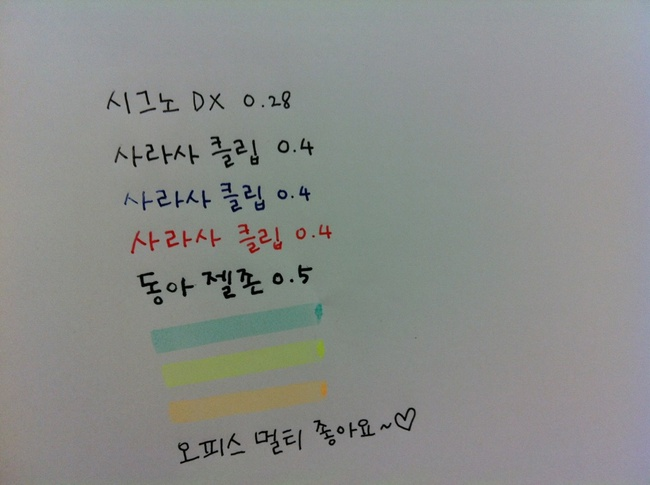 시그노 DX 0.28
사라사 클립 0.4
사라사 클립 0.4
사라사 클립 0.4
동아 젤존 0.5
오피스 멀티 좋아요~♡